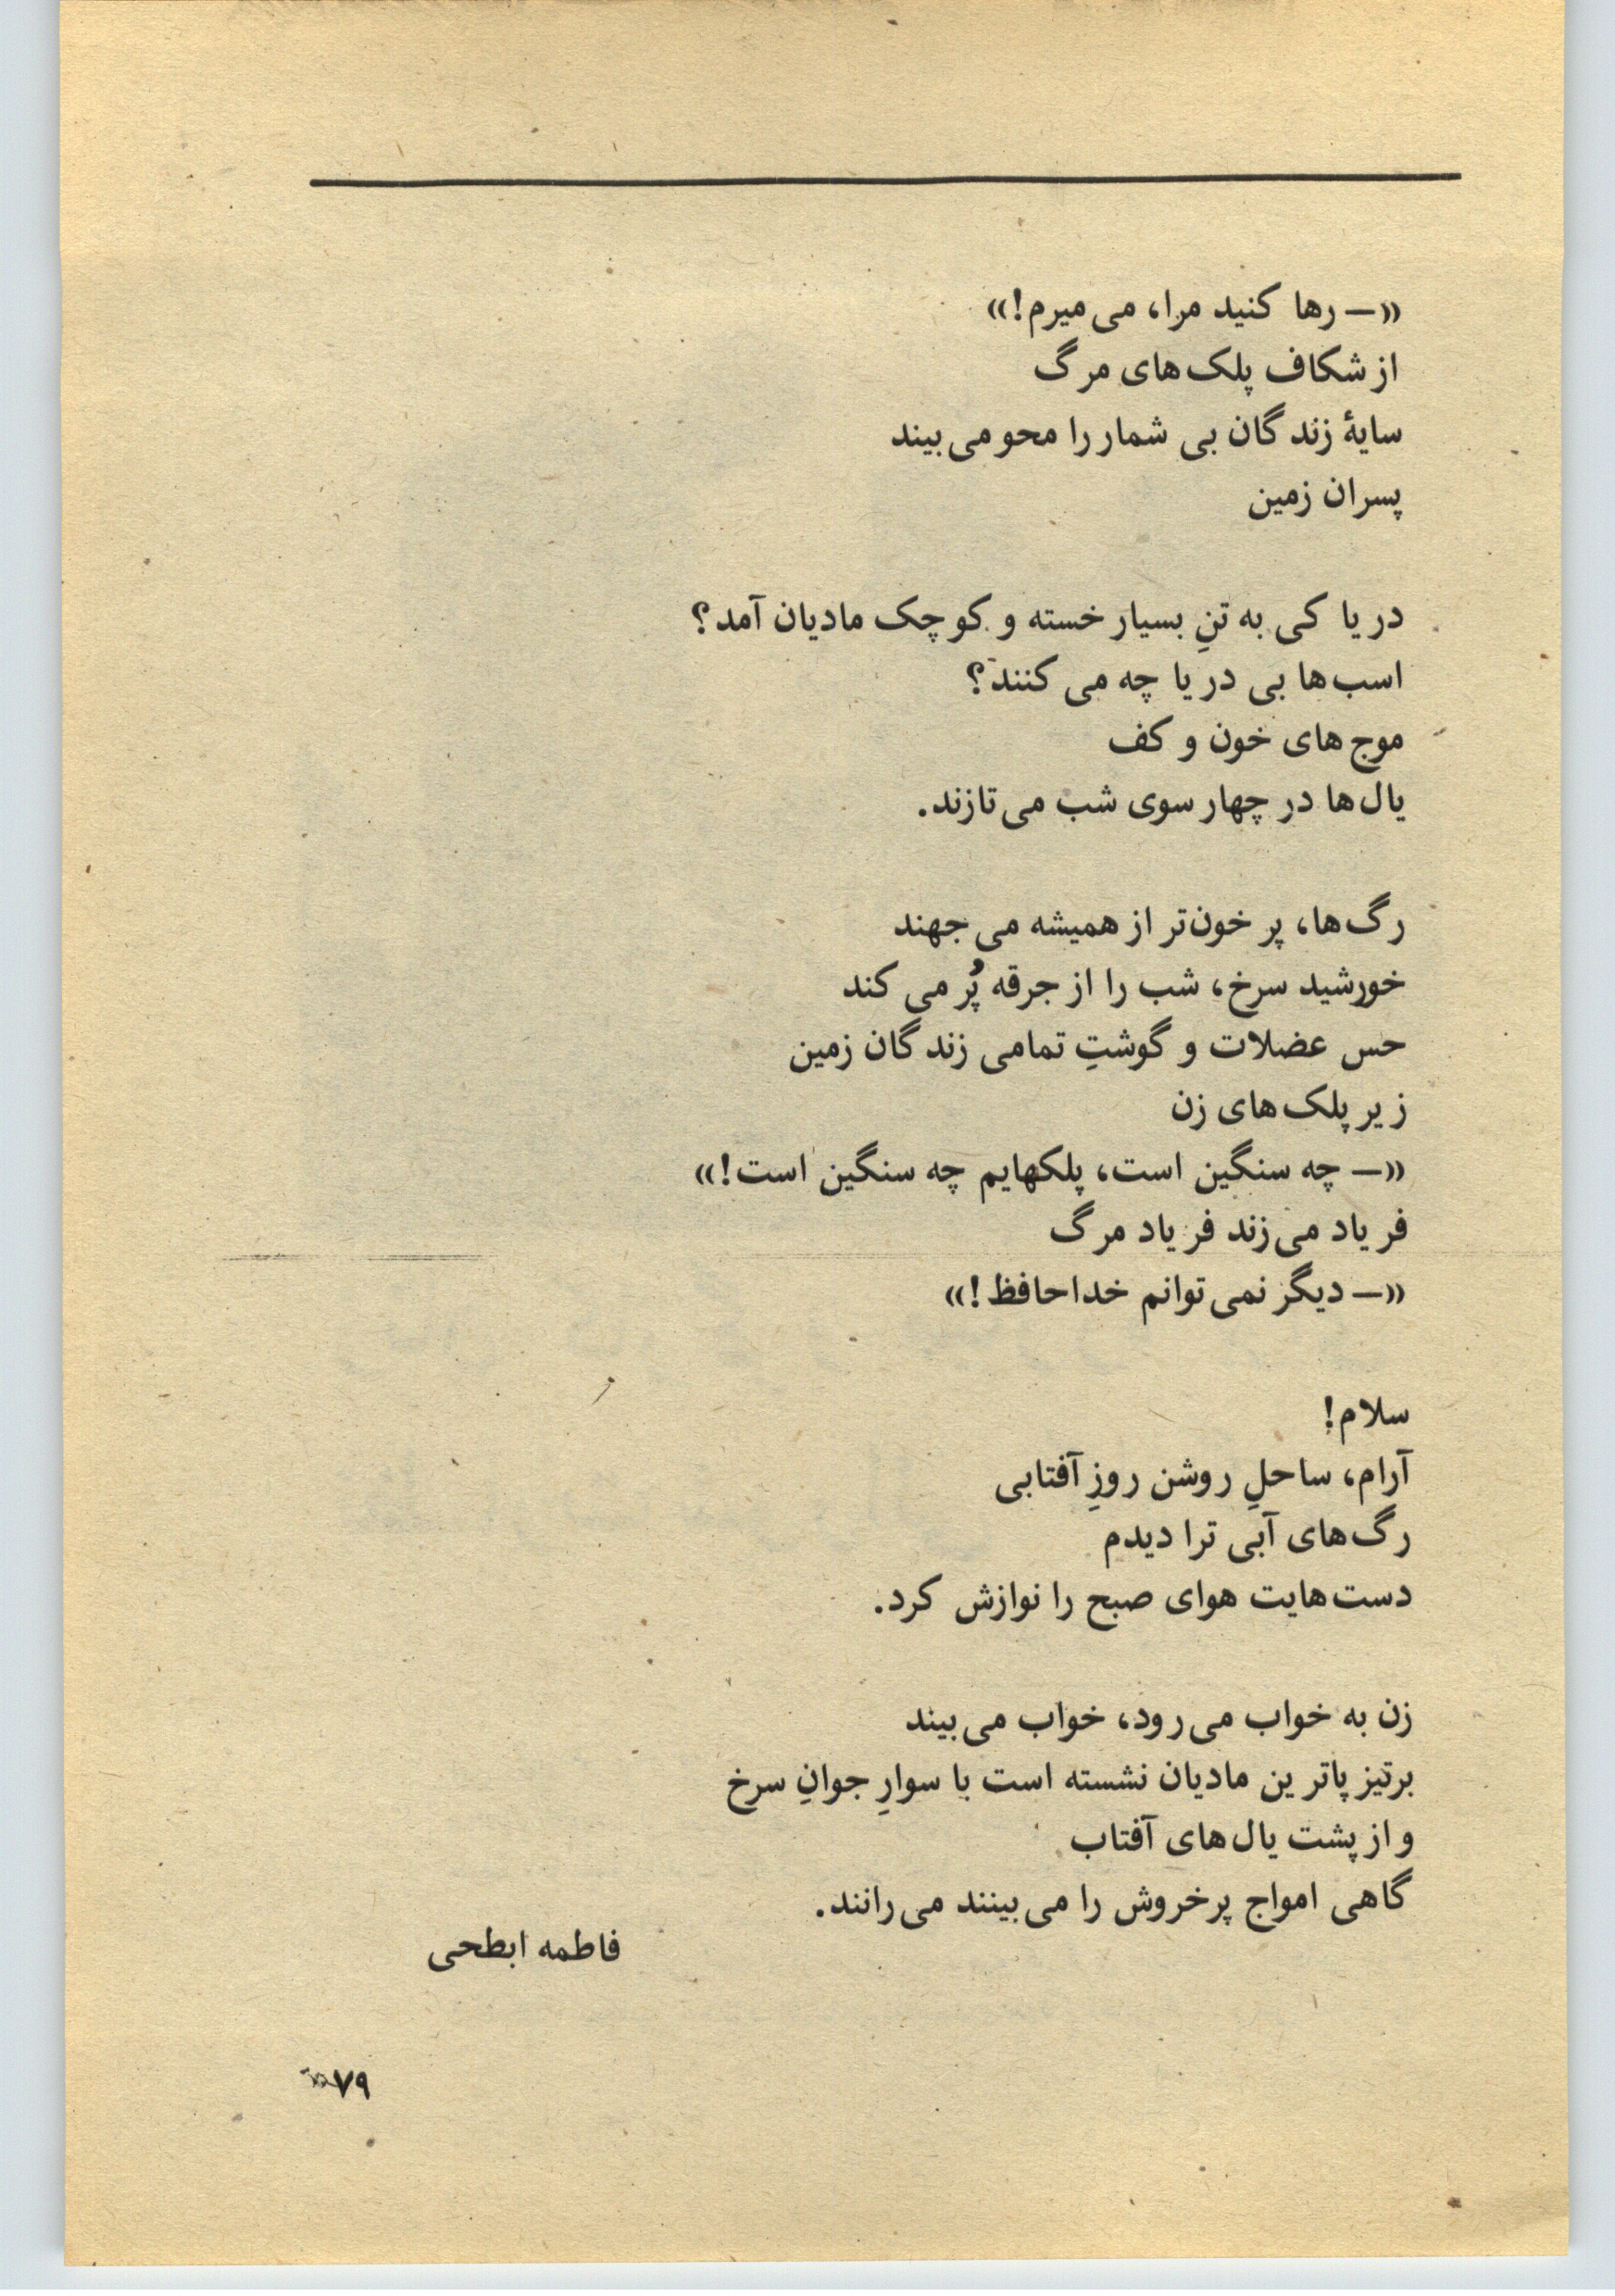 «— رها کنید مرا، می‌میرم!»
از شکاف پلک‌های مرگ
سایهٔ زندگان بی شمار را محو می‌بیند
پسران زمین
دریا کی به تنِ بسیار خسته و کوچک مادیان آمد؟
اسب‌ها بی دریا چه می کنند؟
موج‌های خون و کف
یال‌ها در چهار سوی شب می‌تازند.
رگ‌ها، پر خون‌تر از همیشه می جهند
خورشید سرخ، شب را از جرقه پُر می کند
حس عضلات و گوشتِ تمامی زندگان زمین
زیر پلک‌های زن
«— چه سنگین است، پلکهایم چه سنگین است!»
فریاد می‌زند فریاد مرگ
«— دیگر نمی‌توانم خداحافظ!»
سلام!
آرام، ساحلِ روشن روزِ آفتابی
رگ‌های آبی ترا دیدم
دست‌هایت هوای صبح را نوازش کرد.
زن به خواب می‌رود، خواب می‌بیند
برتیزپاترین مادیان نشسته است با سوارِ جوانِ سرخ
و از پشت یال‌های آفتاب
گاهی امواج پرخروش را می‌بینند می‌رانند.
فاطمه ابطحی
۷۹